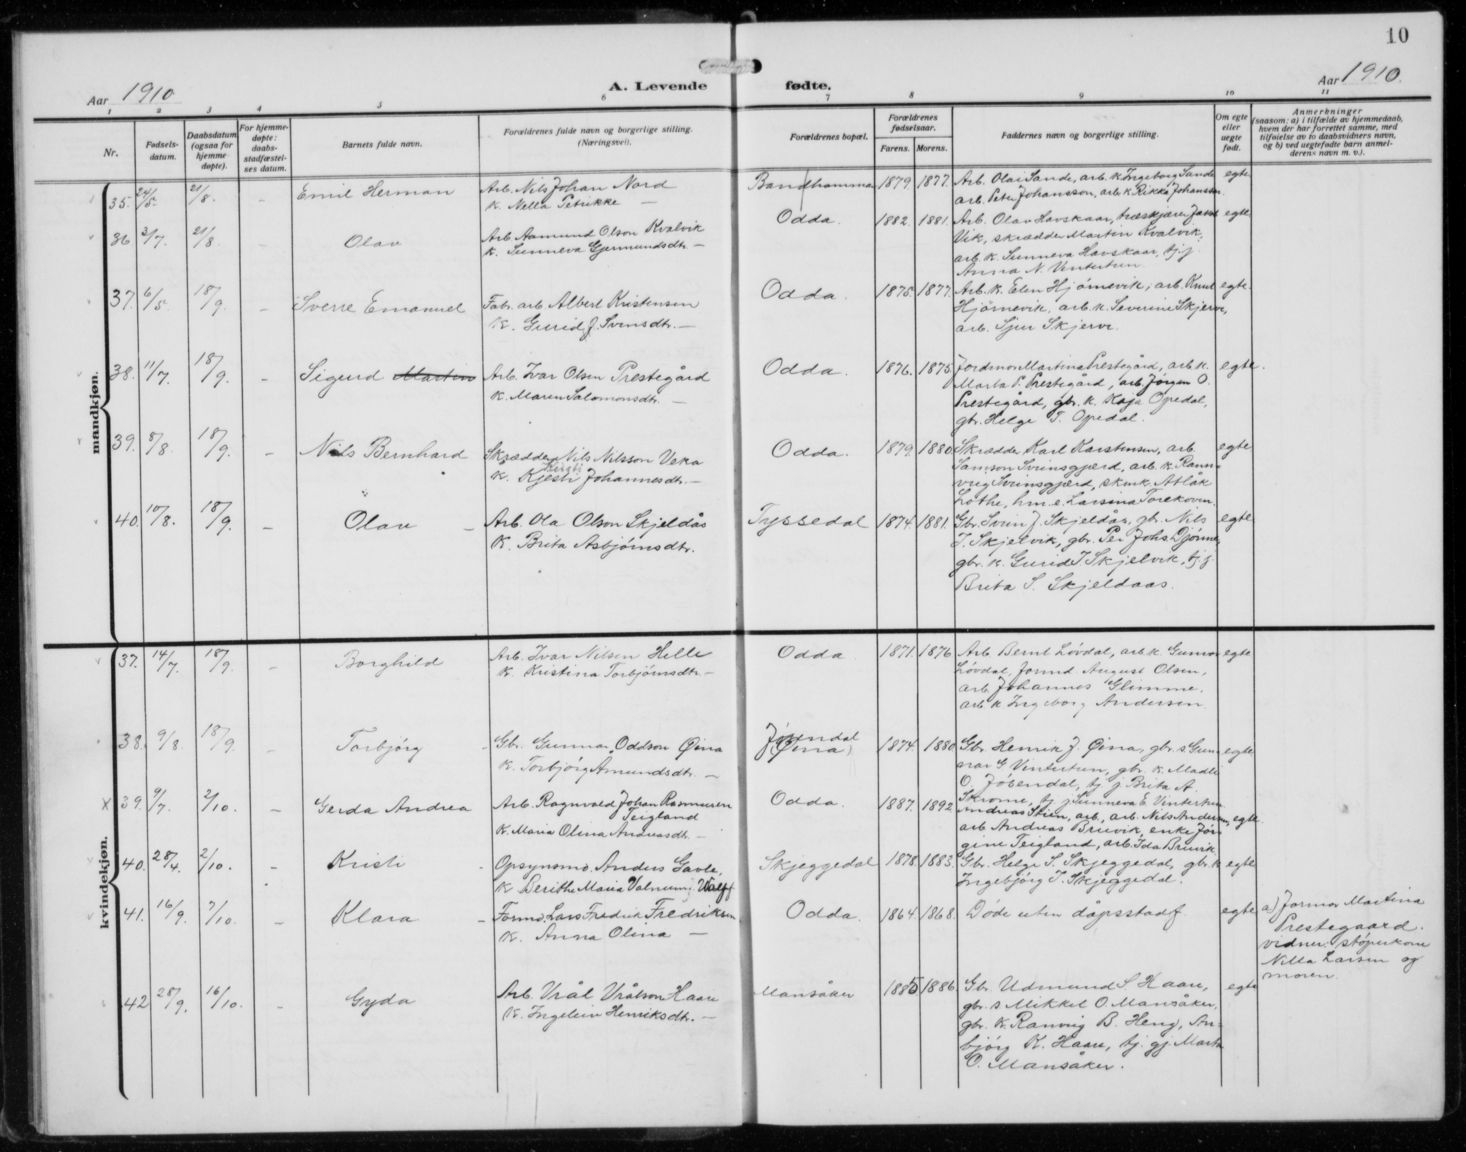 10
Aar 1910
A. Levende fødte.
Aar 1910.
1 2 3 4 5 6 7 8 9 10 11
Nr.
Fødsels-
datum.
Daabsdatum
(ogsaa for
hjemme-
døpte).
For hjemme-
døpte:
daabs-
stadfæstel-
ses datum.
Barnets fulde navn.
Forældrenes fulde navn og borgerlige stilling.
(Næringsvei).
Forældrenes bopæl.
Forældrenes
fødselsaar.
Farens. Morens.
Faddernes navn og borgerlige stilling.
Om egte
eller
uegte
født.
Anmerkninger
(saasom: a) i tilfælde av hjemmedaab,
hvem der har forrettet samme, med
tilføielse av to daabsvidners navn,
og b) ved uegtefødte barn anmel-
derens navn m. v.).
mandkjøn.
35. 24/5. 21/8. Emil Herman
Arb. Nils Johan Nord
K. Nella Petrikke —
1879. 1877.
Arb. Olai Sande, arb. k. Ingeborg Sande
arb. Peter Johansson, arb. k. Rikka Johansen
egte
36 2/7. 21/8. - Olav
Arb. Aamund Olson Kvalvik
K. Sunneva Gjermundsdtr. —
Odda. 1882. 1881.
Arb. Olav Havskaar, træskjærer Jakob
Vik, skrædder Martin Kvalvik,
arb. k. Sunneva Havskaar, tj.p.
Anna N. Vintertun.
egte
37. 6/5. 18/9. - Sverre Emanuel
Fabr. arb. Albert Kristensen
K. Gurid J. Svensdtr. —
Odda. 1875. 1877.
Arb. k. Elen Hjørnevik, arb. Knut
Hjørnevik, arb. k. Severine Skjerve,
arb. Sjur Skjerve.
egte.
38. 11/7. 18/9. - Sigurd Martin
Arb. Ivar Olsen Prestegård
K. Maren Salomonsdtr. —
Odda. 1876. 1875.
Jordmor Martina Prestegård, arb. k.
Marta P. Prestegård, arb. Jørgen O.
Prestegård, gbr. k. Kaja Opedal,
gbr. Helge T. Opedal.
egte.
39. 8/8. 18/9. - Nils Bernhard
Skrædder Nils Nilsson Veka
K. Kjesti Johannesdtr. —
Odda. 1879. 1880.
Skrædder Karl Karstensen, arb.
Samson Sveinsgjerd, arb. k. Rann-
veig Sveinsgjerd, Atlak
Lothe, hm.e. Larsina Torekoven.
egte
40. 10/8. 18/9. - Olav -
Arb. Ola Olson Skjeldås
K. Brita Asbjørnsdtr.
Tyssedal 1874. 1881.
Gbr. Svein J. Skjeldås, gbr. Nils
J. Skjelvik, gbr. Per Johs Djønne,
gbr. k. Gurid J Skjelvik, tj. p.
Brita S. Skjeldaas.
egte
kvindekjøn.
37. 14/7. 18/9. Borghild
Arb. Ivar Nilsen Helle
K. Kristina Torbjørnsdtr. —
Odda 1871. 1876
Arb. Bernt Løvdal, arb. k. Gunvor
Løvdal, formd. August Olsen,
arb. Johannes Glimme,
arb. k. Ingeborg Andersen.
egte
38. 9/8. 18/9. - Torbjørg -
Gbr. Gunnar Oddson Øina
K. Torbjørg Amundsdtr. —
(Øina) 1874. 1880
Gbr. Henrik J. Øina, gbr. s. Gun-
nar G Vintertun, gbr. k. Madli
O. Jøsendal, tj. p. Brita A.
Skromme, tj. p. Sunneva E. Vintertun
egte
X 39. 9/7. 2/10. - Gerda Andrea
Arb. Ragnvald Johan Rasmussen
Teigland
K. Maria Olina Andreasdtr. —
Odda. 1887. 1892
Andreas Stien, arb., arb. Nils Andersen,
arb. Andreas Bruvik, enke Jør-
gine Teigland, arb. Ida Bruvik
egte.
40. 28/4. 2/10. - Kristi -
Opsynsmd. Anders Gavle,
K. Berithe Maria Wulff
Skjeggedal 1878. 1883.
Gbr. Helge S. Skjeggedal, gbr. k.
Ingebjørg J. Skjeggedal.
egte
41. 16/9. 7/10. - Klara -
Formd. Lars Fredrik Fredriksen
K. Anna Olina —
Odda. 1864. 1868.
Døde uten dåpsstadf.
egte
a) Jormor Martina
Prestegaard.
vidner: støperkone
Nilla Larsen og
moren.
42 28/9. 16/10. - Gyda
Arb. Vrål Vrålson Haare
K. Ingelein Henriksdtr. —
Mansåker 1885 1886
Gb. Udmund S Haare,
gbr. s Mikkel O Mansåker,
gbr. k. Ranveig B. Heng, An-
bjørg K. Haare, tj. gj. Marta
O. Mansåker.
egte